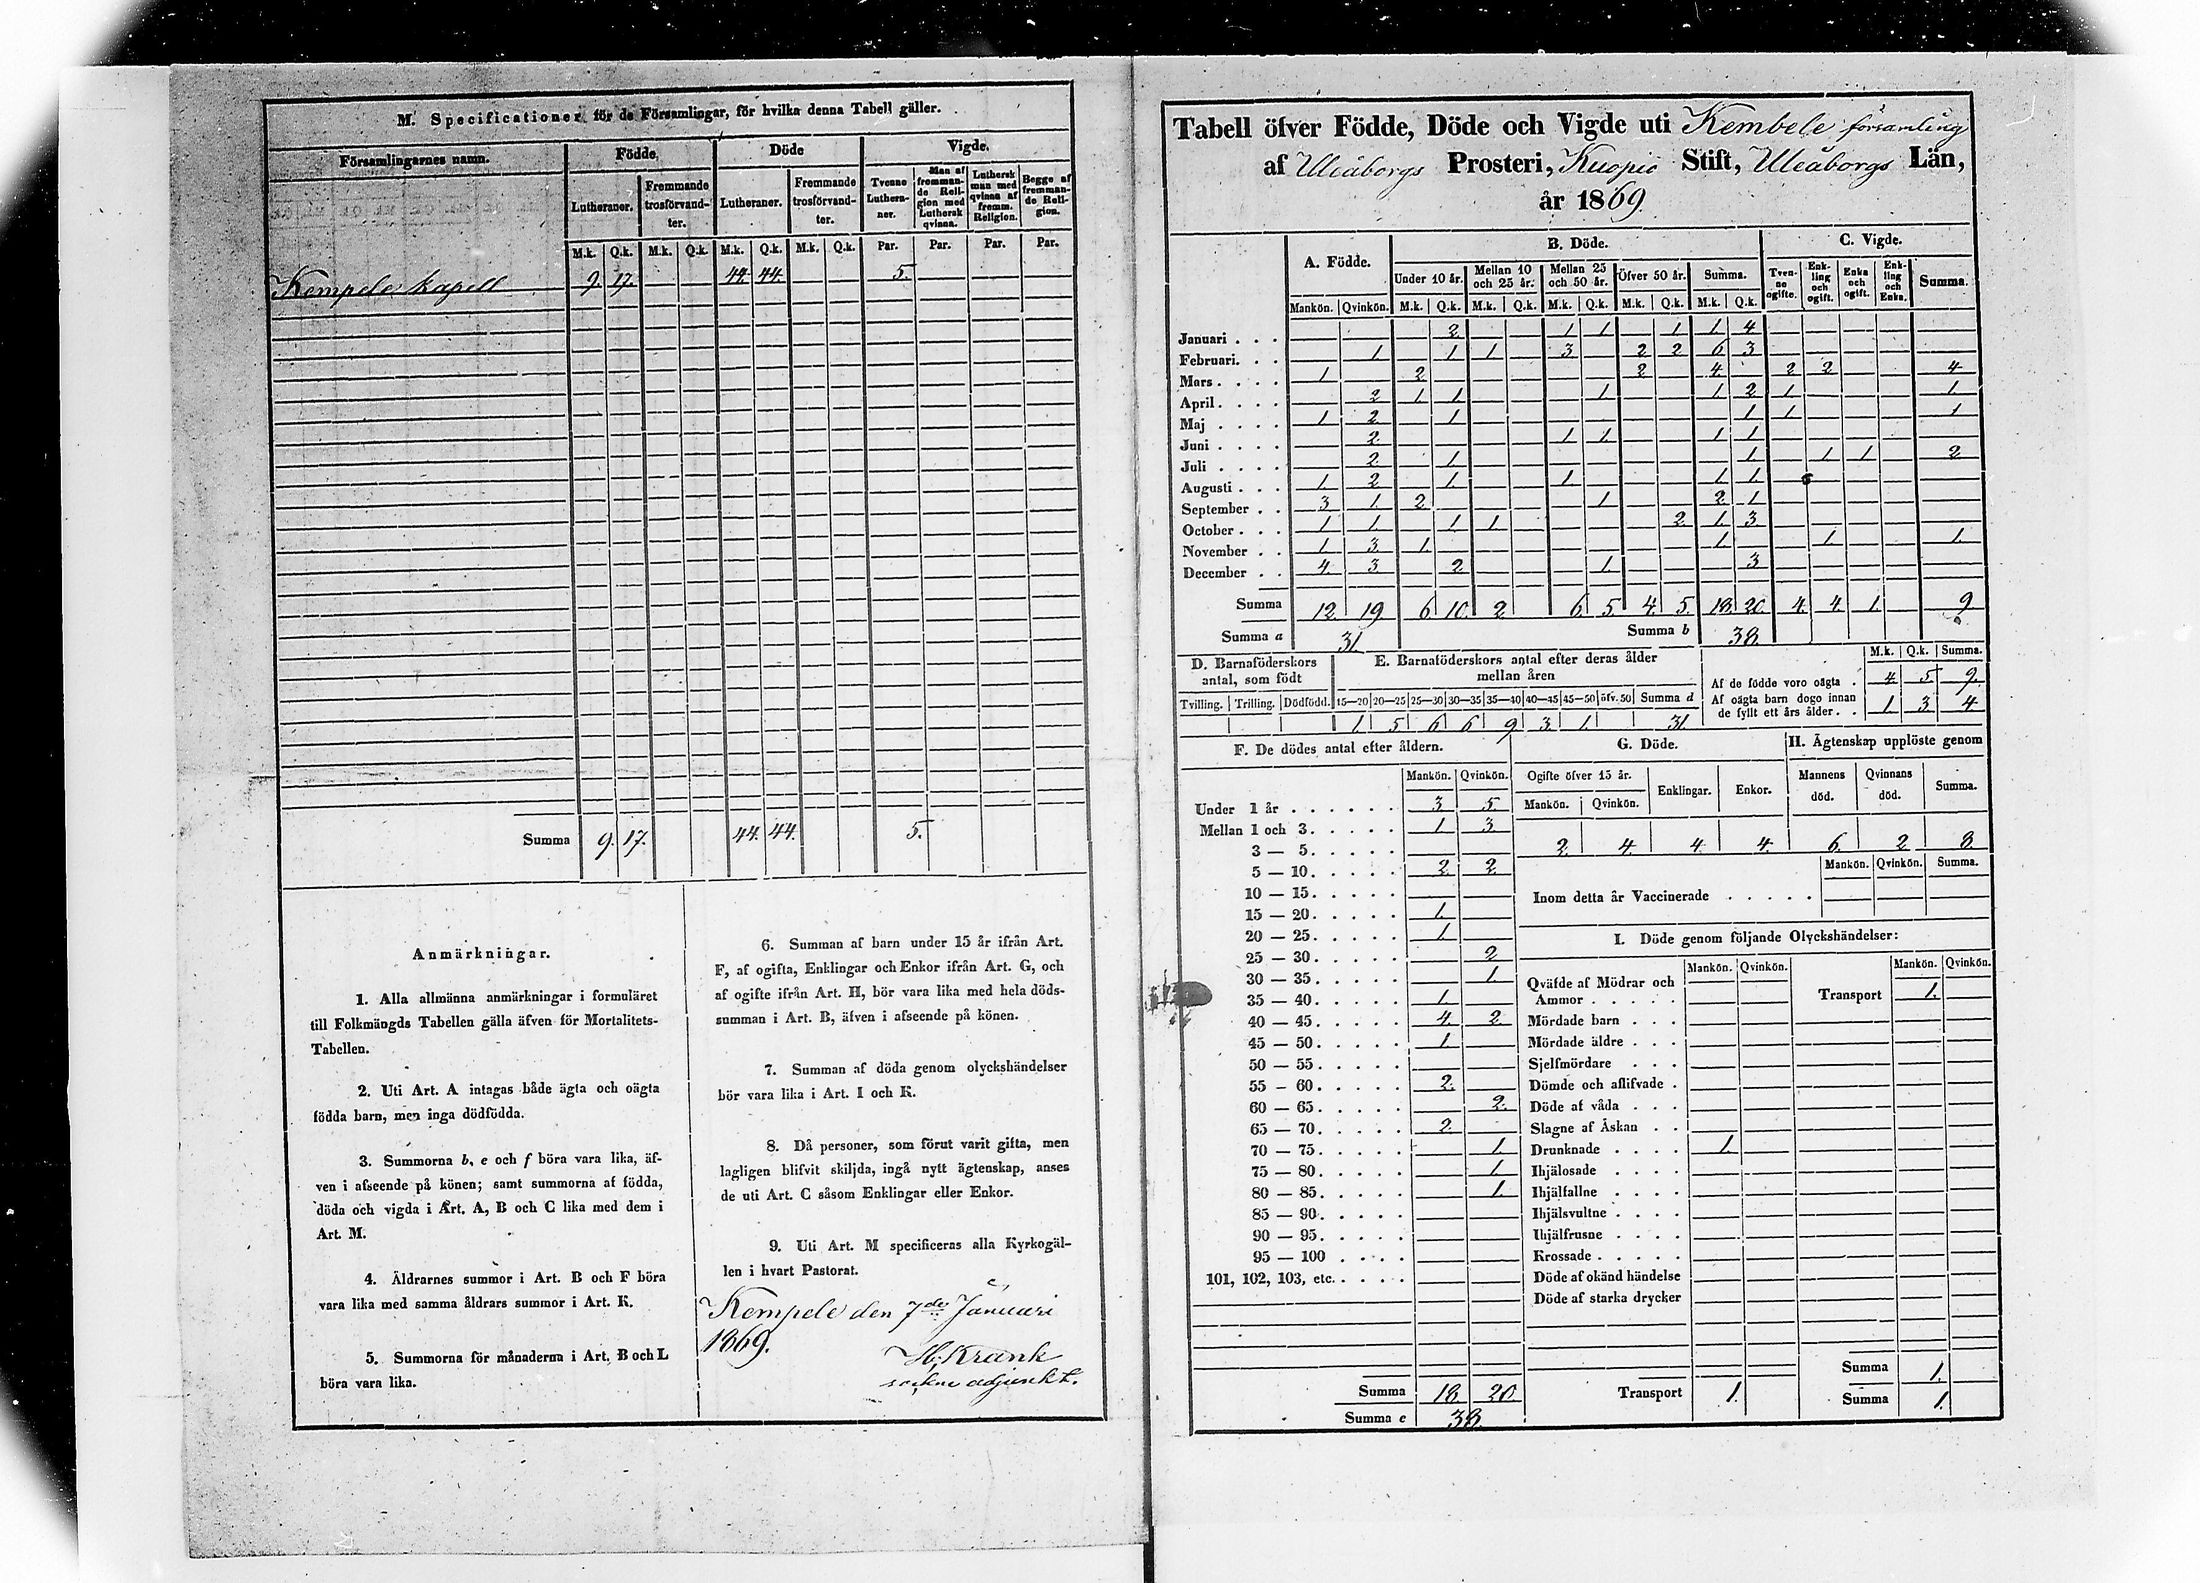 M. Specificationer för de Församlingar, för hvilka denna Tabell gäller.
Församlingarnes namn. Födde. Döde Vigde.
Lutheraner. Fremmande trosförvandter. Lutheraner. Fremmande trosförvandter. Tvenne Lutheraner. Man af fremmande Religion med Luthersk qvinna. Luthersk man med qvinna af fremm. Religion. Begge af fremmande Religion.
M.k. Q.k. M.k. Q.k. M.k. Q.k. M.k. Q.k. Par. Par. Par. Par.
Kempele kapell 9. 17. 44. 44. 5.
Summa 9. 17. 44. 44. 5.
Anmärkningar.
1. Alla allmänna anmärkningar i formuläret
till Folkmängds Tabellen gälla äfven för Mortalitets-
Tabellen.
2. Uti Art. A intagas både ägta och oägta
födda barn, men inga dödfödda.
3. Summorna b, e och f böra vara lika, äf-
ven i afseende på könen; samt summorna af födda,
döda och vigda i Art. A, B och C lika med dem i
Art. M.
4. Äldrarnes summor i Art. B och F böra
vara lika med samma åldrars summor i Art. K.
5. Summorna för månaderna i Art. B och L
böra vara lika.
6. Summan af barn under 15 år ifrån Art.
F, af ogifta, Enklingar och Enkor ifrån Art. G, och
af ogifte ifrån Art. H, bör vara lika med hela döds-
summan i Art. B, äfven i afseende på könen.
7. Summan af döda genom olyckshändelser
bör vara lika i Art. I och K.
8. Då personer, som förut varit gifta, men
lagligen blifvit skiljda, ingå nytt ägtenskap, anses
de uti Art. C såsom Enklingar eller Enkor.
9. Uti Art. M specificeras alla Kyrkogäl-
len i hvart Pastorat.
Kempele den 7de Januari
1869.
H. Krank
sockne adjunkt.
Tabell öfver Födde, Döde och Vigde uti Kembele församling
af Uleåborgs Prosteri, Kuopio Stift, Uleåborgs Län,
år 1869.
A. Födde. B. Döde. C. Vigde.
Under 10 år. Mellan 10 och 25 år. Mellan 25 och 50 år. Öfver 50 år. Summa. Tvenne ogifte. Enkling och ogift. Enka och ogift. Enkling och Enka. Summa.
Mankön. Qvinkön. M.k. Q.k. M.k. Q.k. M.k. Q.k. M.k. Q.k. M.k. Q.k.
Januari . . . 2. 1 1 1 1 4
Februari. . . 1 1 1 3 2 2 6 3
Mars . . . . 1 2 2 4. 2 2 4
April . . . . 2 1 1 1 1 2 1 1.
Maj . . . . 1 2 1 1 1 1
Juni . . . . 2 1 1 1 1
Juli . . . . 2 1 1 1 1 2
Augusti . . . 1. 2 1. 1 1 1
September . . 3 1. 2 1 2 1
October . . . 1 1. 1 1 2 1 3
November . . 1 3 1. 1 1 1.
December . . 4. 3 2 1 3
Summa 12. 19. 6. 10. 2 6. 5. 4. 5. 18. 20. 4. 4. 1. 9.
Summa a 31. Summa b 38.
D. Barnaföderskors antal, som födt
E. Barnaföderskors antal efter deras ålder mellan åren
M.k. Q.k. Summa.
Af de födde voro oägta . 4 5 9.
Af oägta barn dogo innan de fyllt ett års ålder . . 1 3 4
Tvilling. Trilling. Dödfödd. 15—20 20—25 25—30 30—35 35—40 40—45 45—50 öfv. 50 Summa d
1. 5 6 6 9 3 1. 31.
F. De dödes antal efter åldern.
Mankön. Qvinkön.
Under 1 år . . . . . . 3 5.
Mellan 1 och 3. . . . . 1 3
3 — 5. . . . .
5 — 10. . . . . 2 2
10 — 15. . . . .
15 — 20. . . . . 1.
20 — 25. . . . . 1
25 — 30. . . . . 2
30 — 35. . . . . 1.
35 — 40. . . . . 1
40 — 45. . . . . 4. 2
45 — 50. . . . . 1
50 — 55. . . . .
55 - 60. . . . . 2.
60 — 65. . . . . 2.
65 — 70. . . . . 2.
70 — 75. . . . . 1.
75 — 80. . . . . 1.
80 — 85. . . . . 1.
85 — 90. . . . .
90 — 95. . . . .
95 — 100 . . . .
101, 102, 103, etc. . . . .
Summa 18. 20.
Summa e 38.
G. Döde.
Ogifte öfver 15 år. Enklingar. Enkor.
Mankön. Qvinkön.
2. 4. 4. 4.
H. Ägtenskap upplöste genom
Mannens död. Qvinnans död. Summa.
6. 2 8.
Mankön. Qvinkön. Summa.
Inom detta år Vaccinerade . . . . .
I. Döde genom följande Olyckshändelser:
Mankön. Qvinkön. Mankön. Qvinkön.
Qväfde af Mödrar och
Ammor . . . . . Transport 1.
Mördade barn . . .
Mördade äldre . . .
Sjelfmördare . . .
Dömde och aflifvade .
Döde af våda . . .
Slagne af Åskan . .
Drunknade . . . . 1.
Ihjälosade . . . .
Ihjälfallne . . . .
Ihjälsvultne . . . .
Ihjälfrusne . . . .
Krossade . . . . .
Döde af okänd händelse
Döde af starka drycker
Summa 1.
Transport 1. Summa 1.